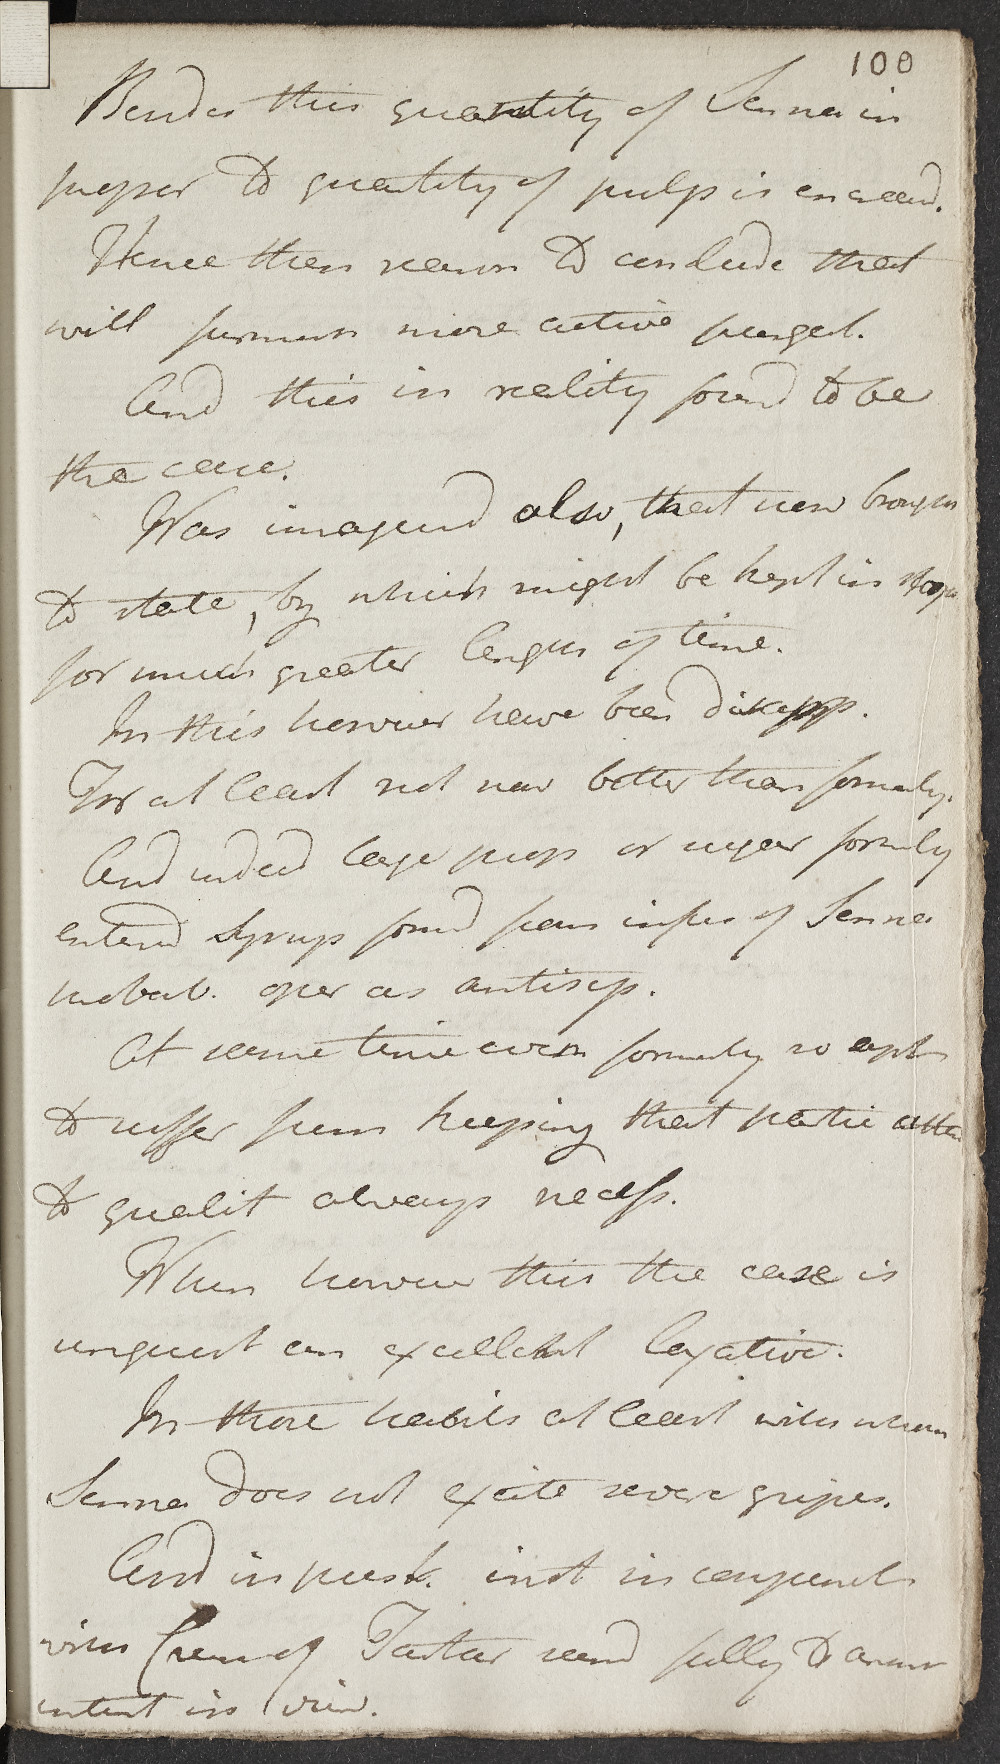 100
Besides this quantity of Senna in
proper to quantity of pulp is encreasd.
Hence then reason to conclude that
will furnish more active purgat.
And this in reality found to be
the case.
Was imagined also, that now brought
to state, by which might be kept in shops
for much greater length of time.
In this however have been disapp.
For at least not now better than formerly.
And indeed large prop of sugar formerly
enterd Syrup formd from infus of Senna
probab. oper as antisep.
At same time even formerly so apt
to suffer from keeping that partic atten
to qualit always necess.
When however this the case is
unquest an excellent laxative.
In those habits at least with whom
Senna does not excite severe gripes.
And in pres. inst in conjunct
with Crem of Tartar seemd fully to answer
intent in view.